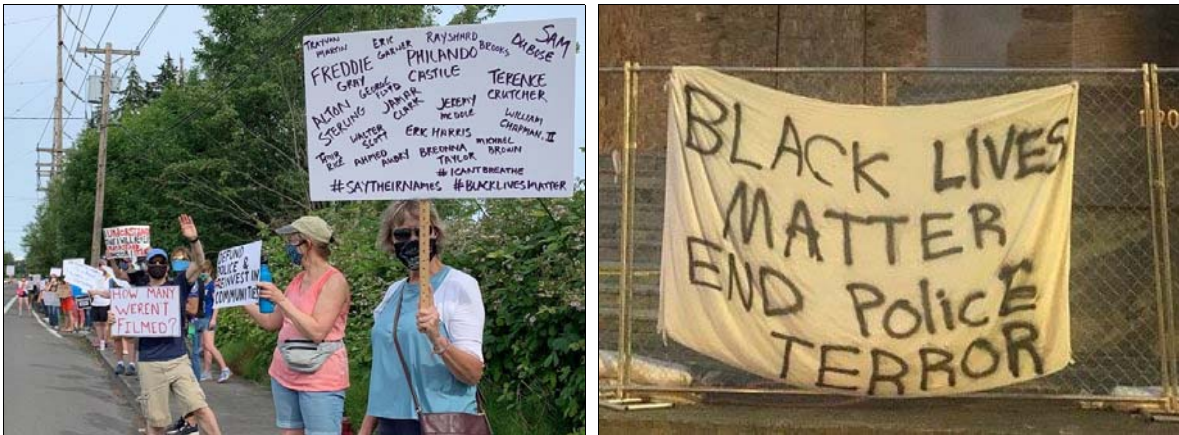 TRAYVON MARTIN
ERIC GARNER
RAYSHARD BROOKS
SAM DUBOSE
FREDDIE GRAY
PHILANDO CASTILE
TERENCE CRUTCHER
GEORGE FLOYD
ALTON STERLING
JAMAR CLARK
JEREMY MCDOLE
WILLIAM CHAPMAN. II
WALTER SCOTT
ERIC HARRIS
MICHAEL BROWN
TAMIR RICE
AHMED AUBRY
BREONNA TAYLOR
#ICANTBREATHE
#SAYTHEIRNAMES #BLACKLIVESMATTER
DEFUND
POLICE &
REINVEST IN
COMMUNITIES
HOW MANY
WEREN'T
FILMED?
BLACK LIVES
MATTER
END POLICE
TERROR